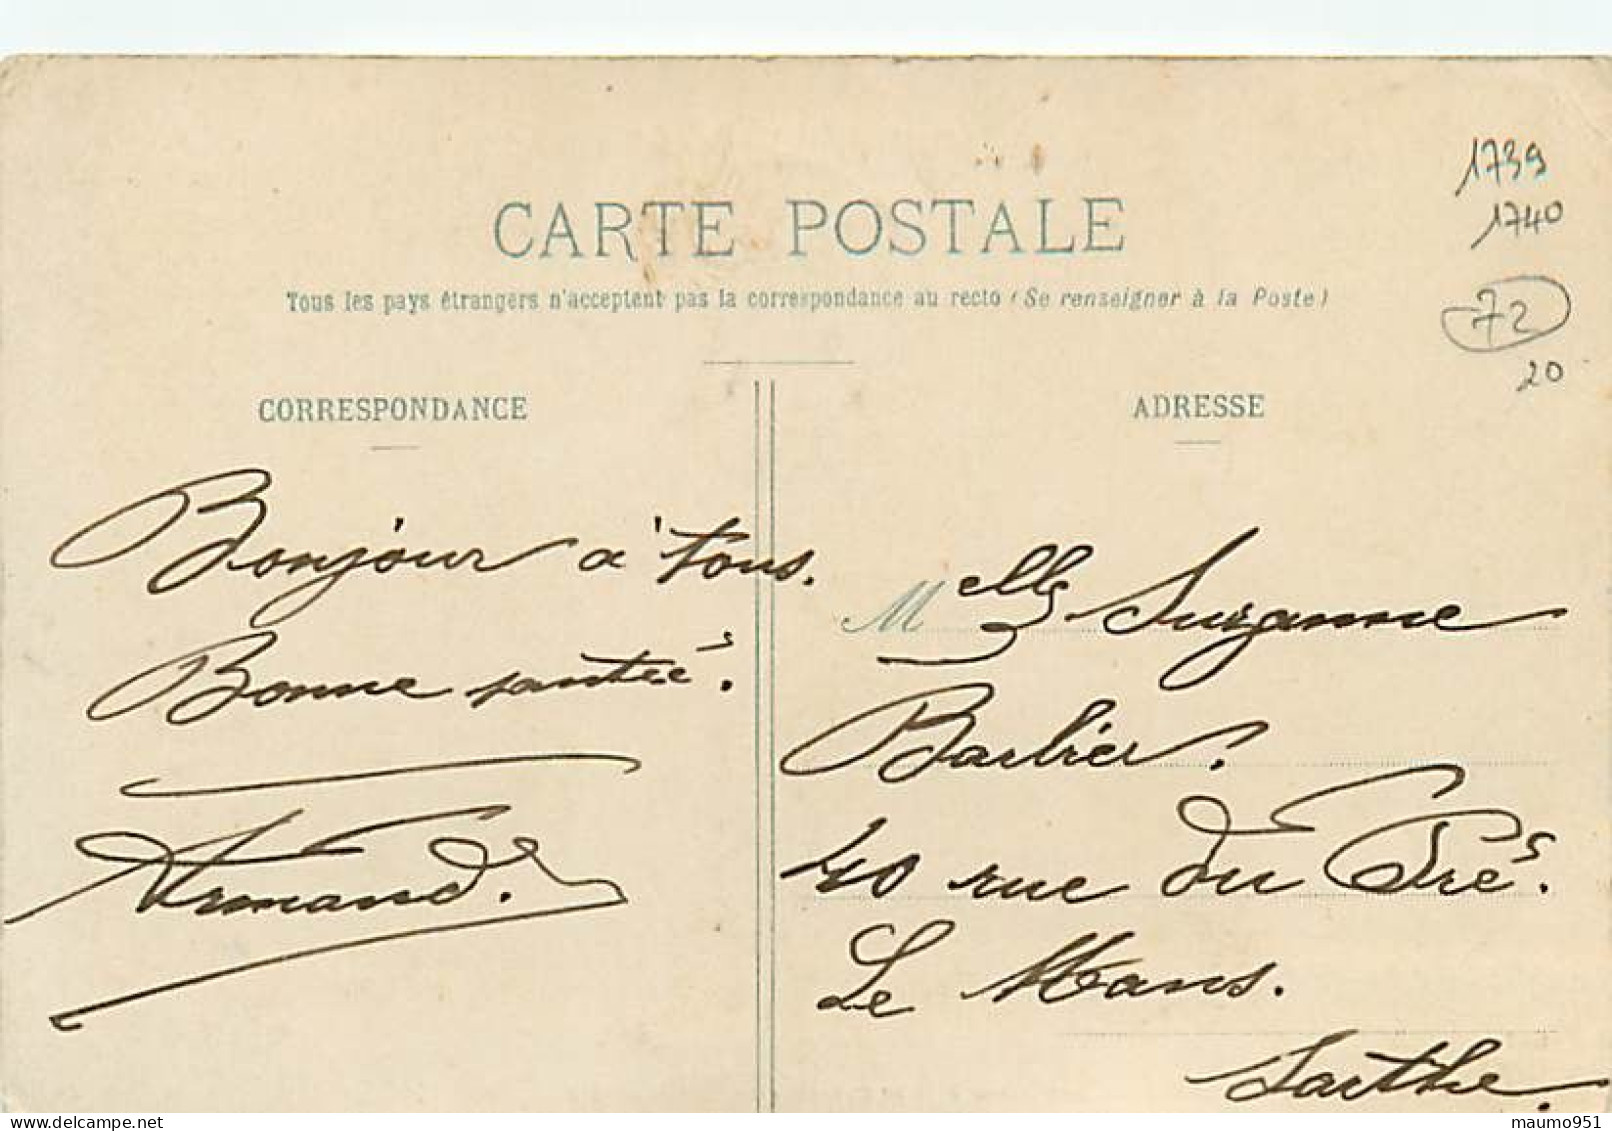 1739
1740
CARTE POSTALE
Tous les pays étrangers n'acceptent pas la correspondance au recto (Se renseigner à la Poste)
72
20
CORRESPONDANCE
Bonjour à tous.
Bonne santée.
Armand.
ADRESSE
Melle Suzanne
Barbier.
40 rue du Pré.
Le Mans.
Sarthe.
maumo951